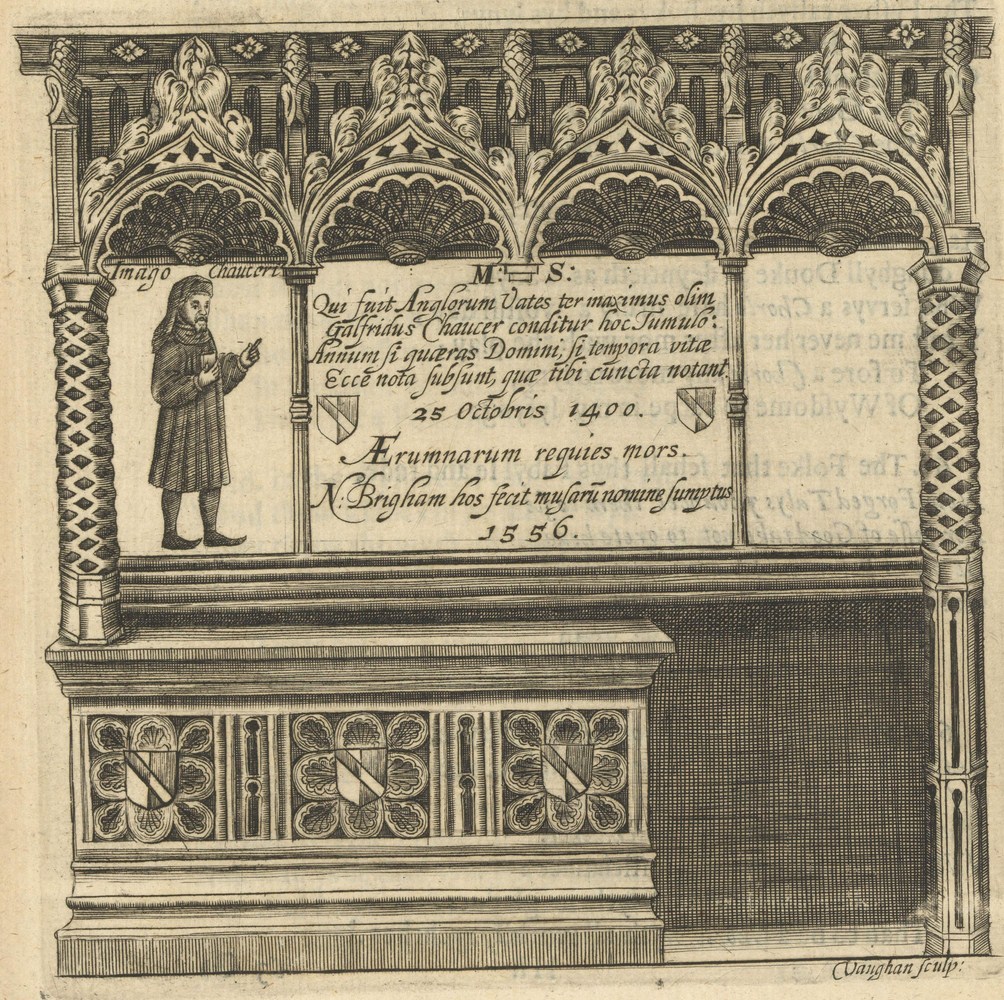 Imago Chauceri
M: S:
Qui fuit Anglorum Vates ter maximus olim
Galfridus Chaucer conditur hoc Tumulo:
Annum si quæras Domini, si tempora vitæ
Ecce nota subsunt, quæ tibi cuncta notant
25 Octobris 1400.
Ærumnarum requies mors.
N: Brigham hos fecit musarū nomine sumptus
1556.
Vaughan sculp: